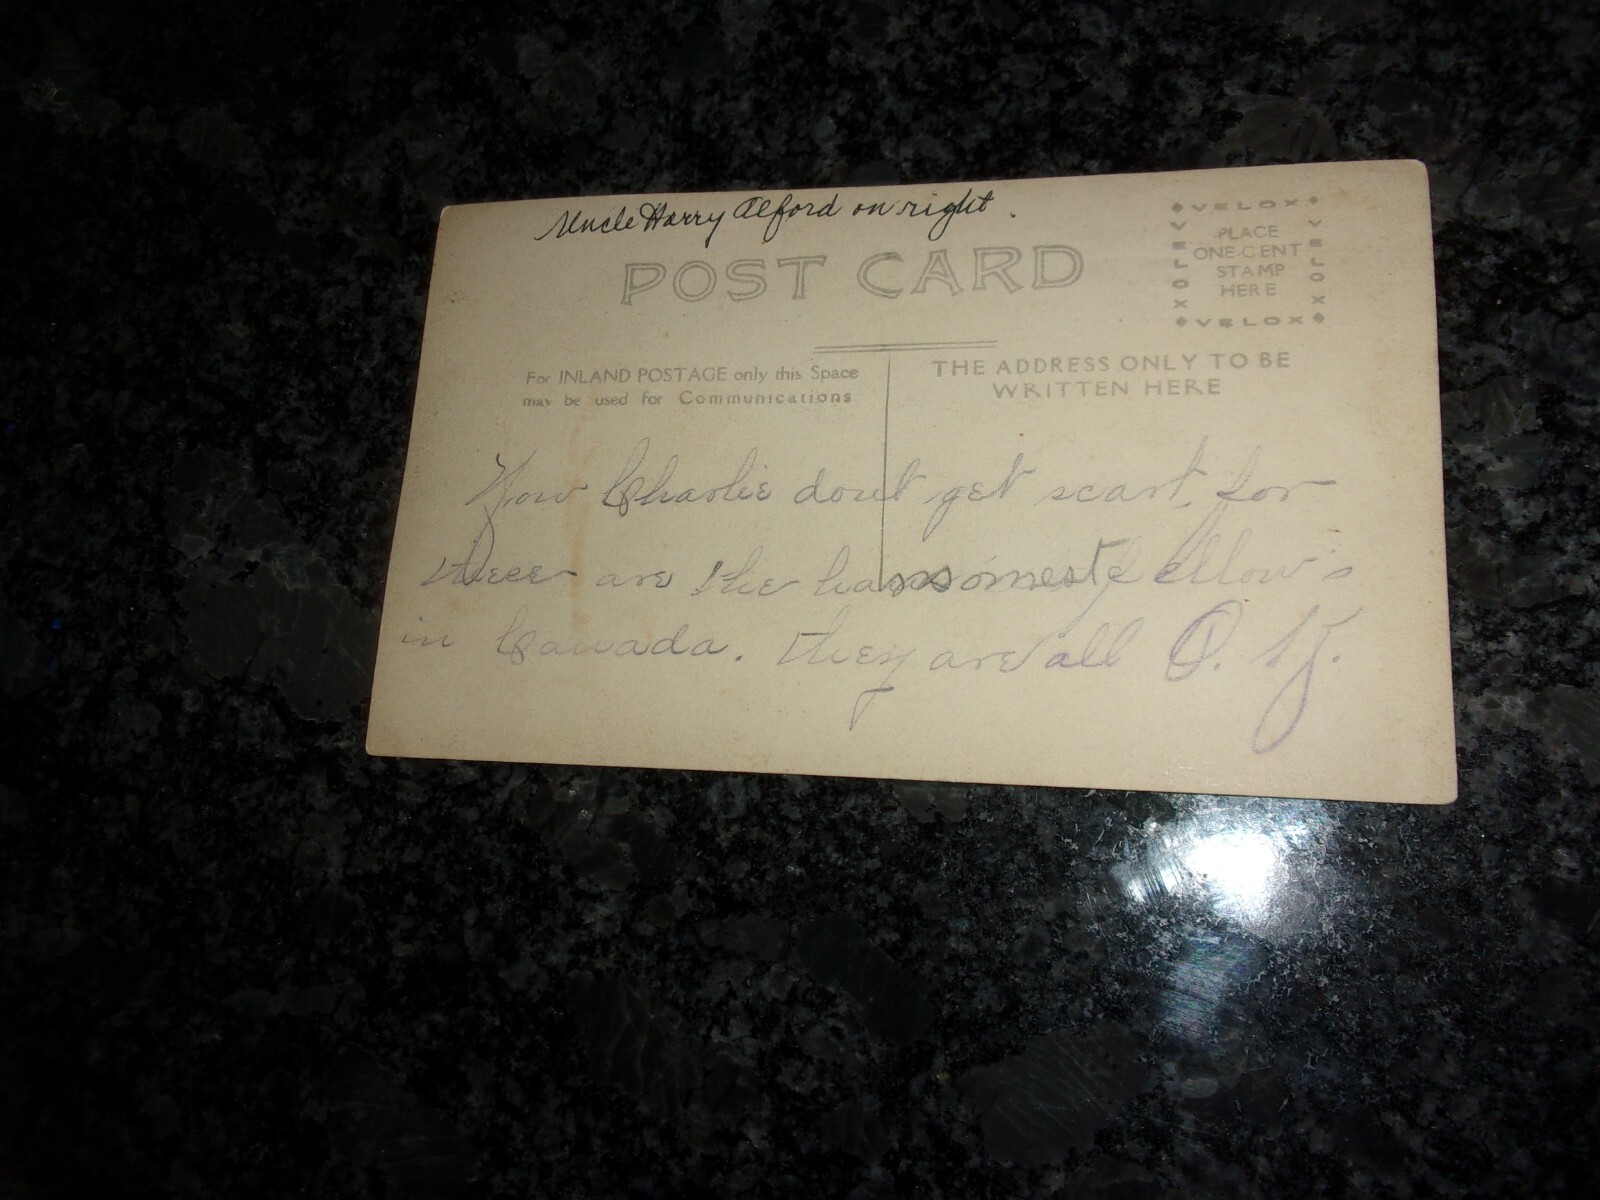 Uncle Harry Alford on right.
POST CARD
VELOX
VELOX
VELOX
PLACE
ONE-CENT
STAMP
HERE
VELOX
For INLAND POSTAGE only this Space
may be used for Communications
THE ADDRESS ONLY TO BE
WRITTEN HERE
Now Charlie dont get scart, for
these are the hansomest fellows
in Canada. they are all O. K.